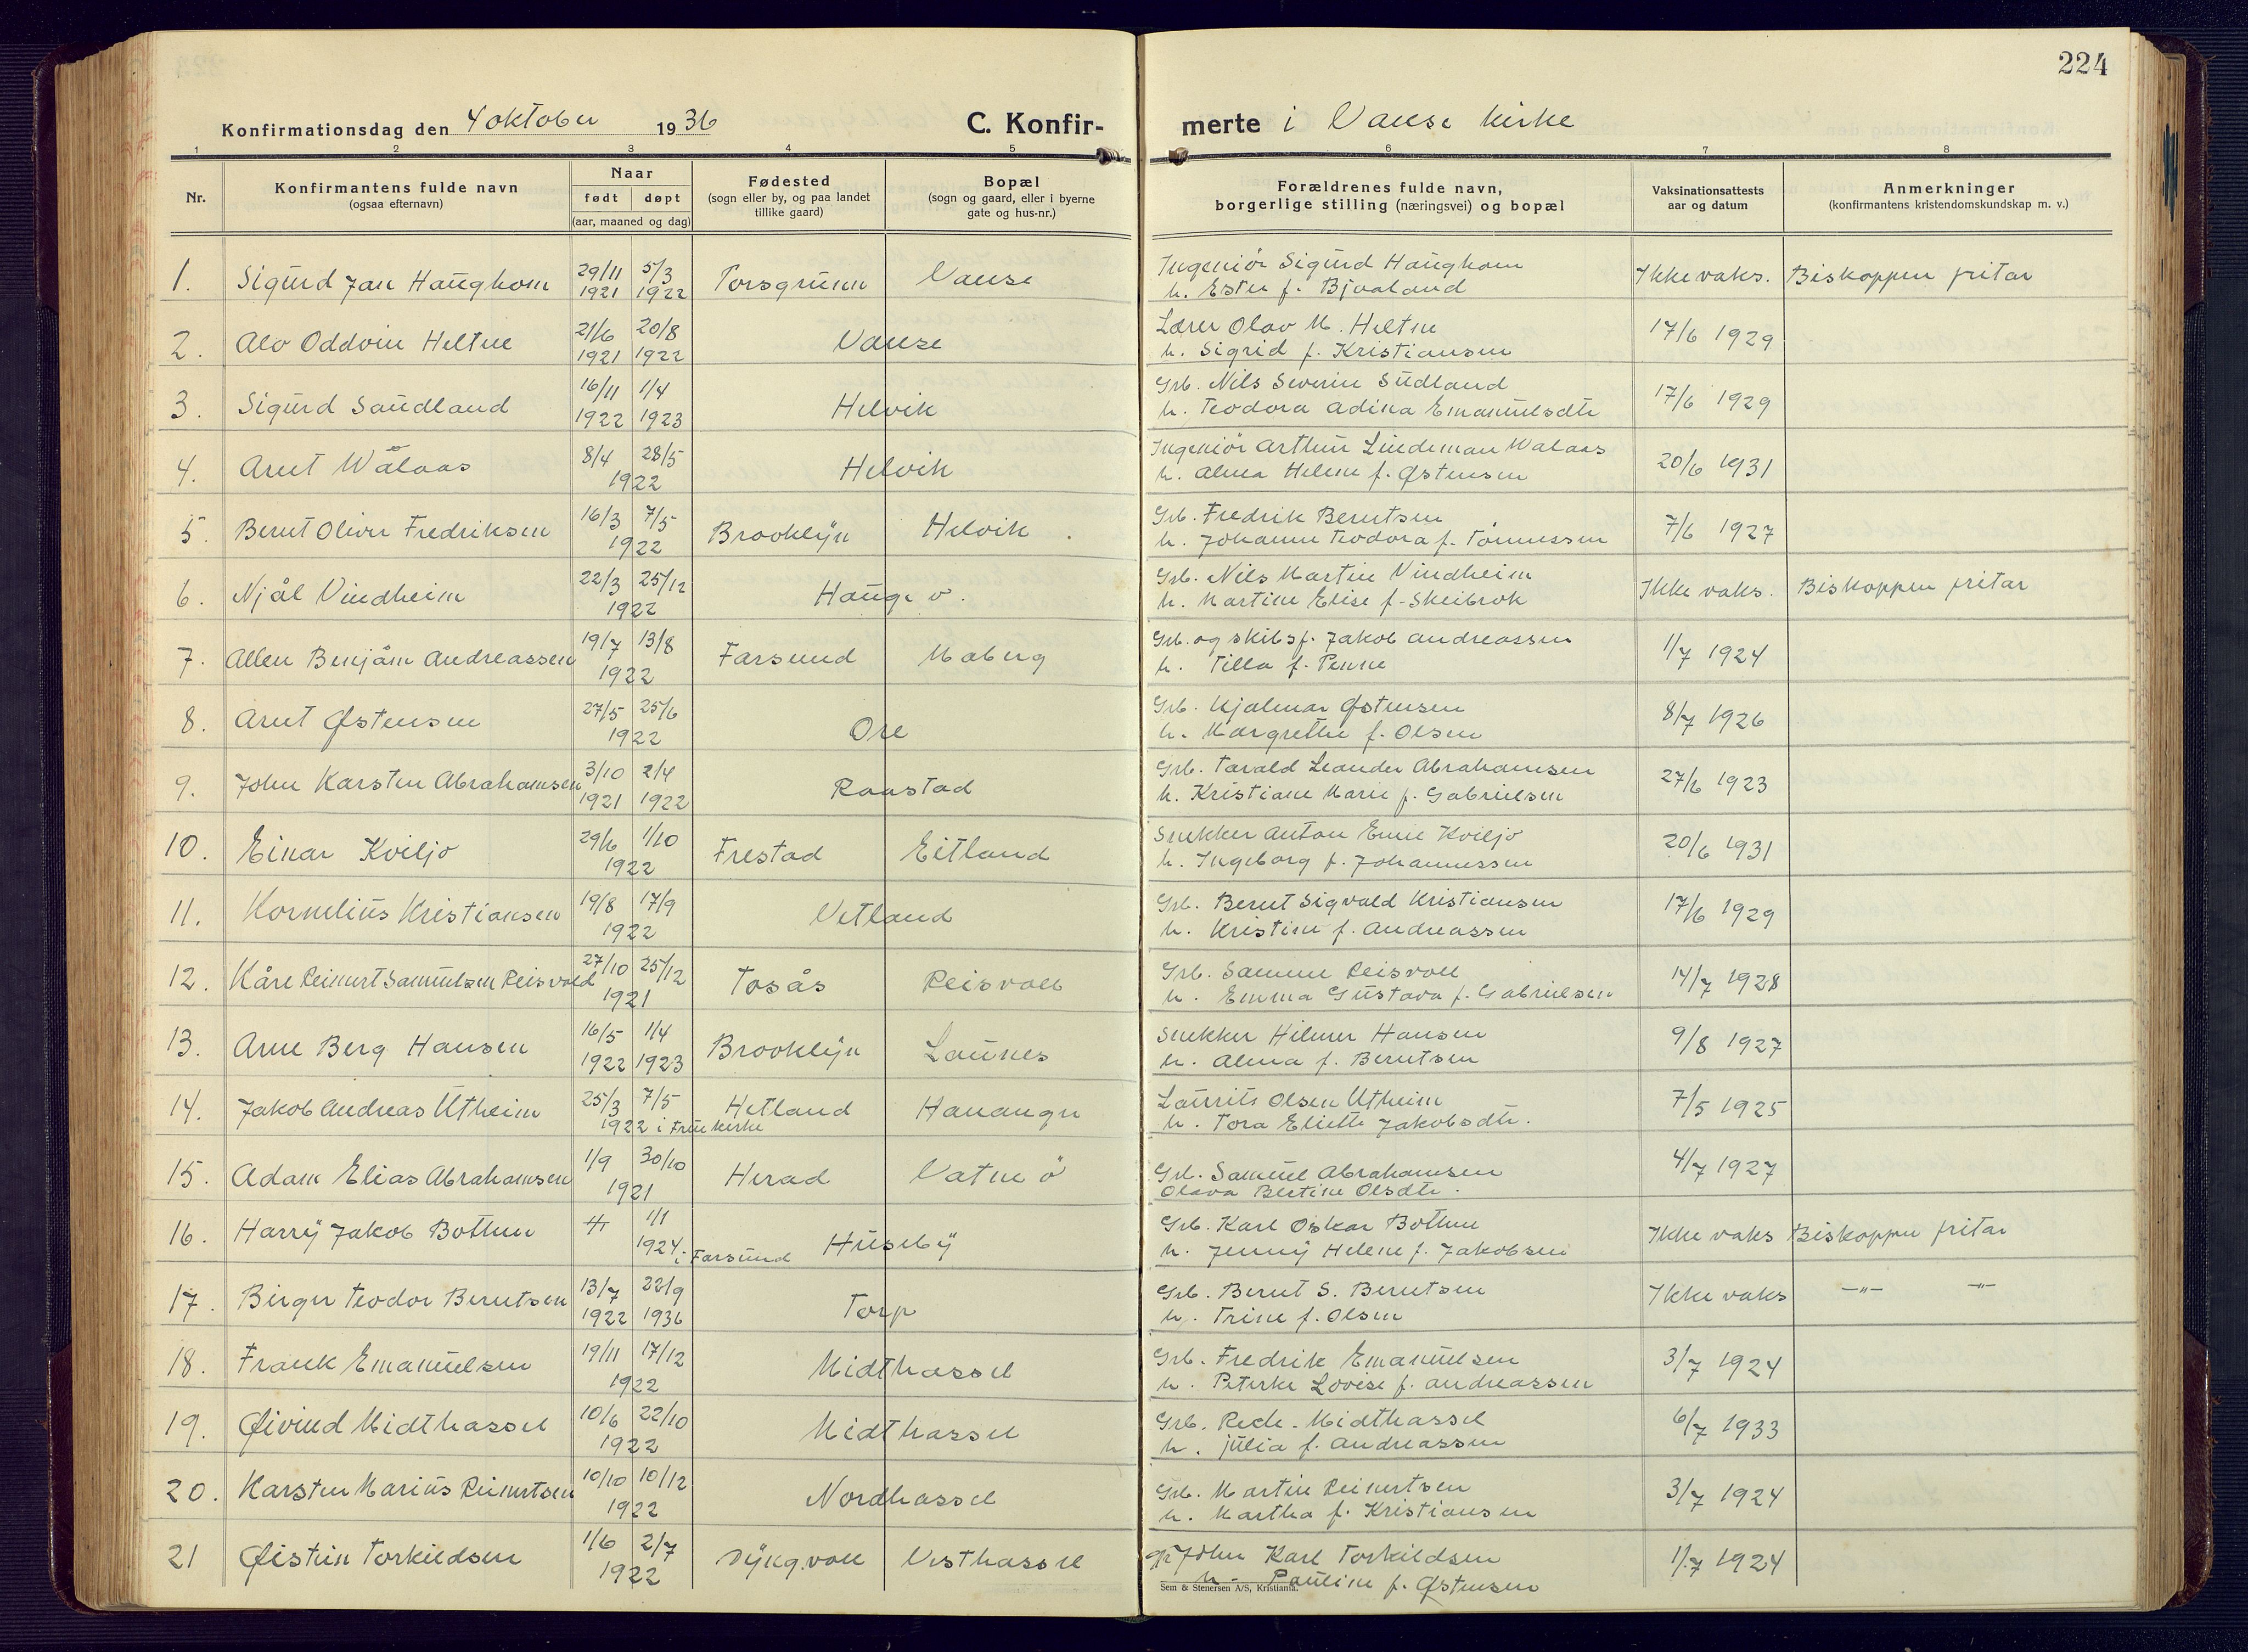 224
Konfirmationsdag den 4 oktober 1936
C. Konfir-
merte i Vanse kirke
1 2 3 4 5 6 7 8
Nr.
Konfirmantens fulde navn
(ogsaa efternavn)
Naar
født døpt
(aar, maaned og dag)
Fødested
(sogn eller by, og paa landet
tillike gaard)
Bopæl
(sogn og gaard, eller i byerne
gate og hus-nr.)
Forældrenes fulde navn,
borgerlige stilling (næringsvei) og bopæl
Vaksinationsattests
aar og datum
Anmerkninger
(konfirmantens kristendomskundskap m. v.)
1. Sigurd Jan Haughom 29/11 1921 5/3 1922 Porsgrunn Vanse Ingeniør Sigurd Haughom
h. Ester f. Bjaaland Ikke vaks. Biskoppen fritar
2. Alv Oddvin Heltne 21/6 1921 20/8 1922 Vanse Lærer Olav M. Heltne
h. Sigrid f. Kristiansen 17/6 1929
3. Sigurd Saudland 16/11 1922 1/4 1923 Helvik Grb. Nils Severin Sudland
h. Teodora Adina Emanuelsdtr 17/6 1929
4. Arnt Wålaas 8/4 28/5 1922 Helvik Ingeniør Arthur Lindeman Walaas
h. Alma Helene f. Østensen 20/6 1931
5. Bernt Oliver Fredriksen 16/3 7/5 1922 Brooklyn Helvik . Grb. Fredrik Berntsen
h. Johanne Teodora f. Tønnessen 7/6 1927
6. Njål Vindheim 22/3 25/12 1922 Hauge v. Grb. Nils Martin Vindheim
h. Martine Elise f. Skeibrok Ikke vaks. Biskoppen fritar
7. Allen Benjåm Andreassen 19/7 13/8 1922 Farsund Maberg Grb. og skibsf. Jakob Andreassen
h. Tilla f. Penne 1/7 1924
8. Arnt Østensen 27/5 25/6 1922 Ore Grb. Hjalmar Østensen
h. Margrethe f. Olsen 8/7 1926
9. John Karsten Abrahamsen 3/10 1921 2/4 1922 Raastad Grb. Tarald Leander Abrahamsen
h. Kristiane Marie f. Gabrielsen 27/6 1923
10. Einar Kviljo 29/6 1/10 1922 Frestad Eitland Snekker Anton Emil Kviljo
h. Ingeborg f. Johannessen 20/6 1931
11. Kornelius Kristiansen 19/8 17/9 1922 Vetland Grb. Bernt Sigvald Kristiansen
h. Kristine f. Andreassen 17/6 1929
12. Kåre Reinert Samuelsen Reisvold 27/10 25/12 1921 Tosås Reisvoll Grb. Samuel Reisvoll
h. Emma Gustava f. Gabrielsen 14/7 1928
13. Arne Berg Hansen 16/5 1922 1/4 1923 Brooklyn Launes Snekker Hilmer Hansen
h. Alma f. Berntsen 9/8 1927
14. Jakob Andreas Utheim 25/3 7/5 1922 i Frue kirke Hetland Hananger Laurits Olsen Utheim
h. Tora Eliette Jakobsdtr. 7/5 1925
15. Adam Elias Abrahamsen 1/9 30/10 1921 Herad Vatne ø Grb. Samuel Abrahamsen
Olava Bertine Olsdtr. 4/7 1927
16. Harry Jakob Bottun 1/1 1924 i Farsund Huseby Grb. Karl Oskar Bottun
h. Jenny Helene f. Jakobsen Ikke vaks Biskoppen fritar
17. Birger Teodor Berntsen 13/7 1922 22/9 1936 Torp Grb. Bernt S. Berntsen
h. Trine f. Olsen Ikke vaks -"- -"-
18. Frank Emanuelsen 19/11 17/12 1922 Midthassel Grb. Fredrik Emanuelsen
h. Peterke Lovise f. Andreassen 3/7 1924
19. Øivind Midthassel 10/6 22/10 1922 Midthassel Grb. Midthassel
h. Julia f. Andreassen 6/7 1933
20. Karsten Marius Reinertsen 10/10 10/12 1922 Nordhassel Grb. Martin Reinertsen
h. Martha f. Kristiansen 3/7 1924
21 Øistein Torkildsen 1/6 2/7 1922 Dyngvoll Vesthassel John Karl Torkildsen
h. Pauline f. Østensen 1/7 1924
Sem & Stenersen A/S, Kristiania.